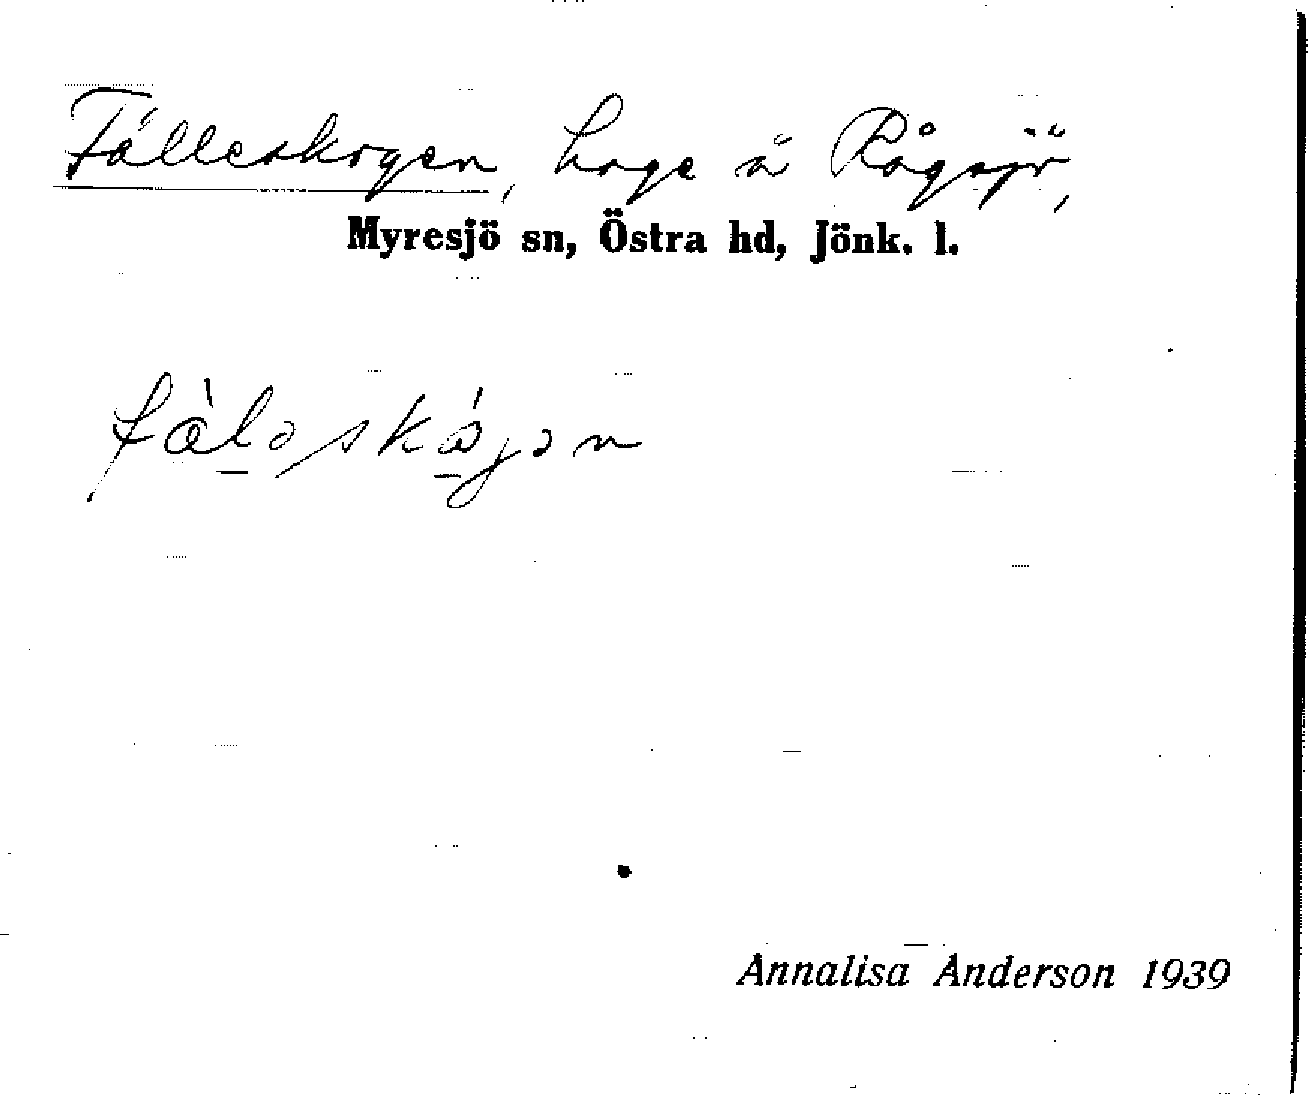 Fälleskogen, hage å Rågsjö,
Myresjö sn, Östra hd, Jönk. l.
Annalisa Anderson 1939